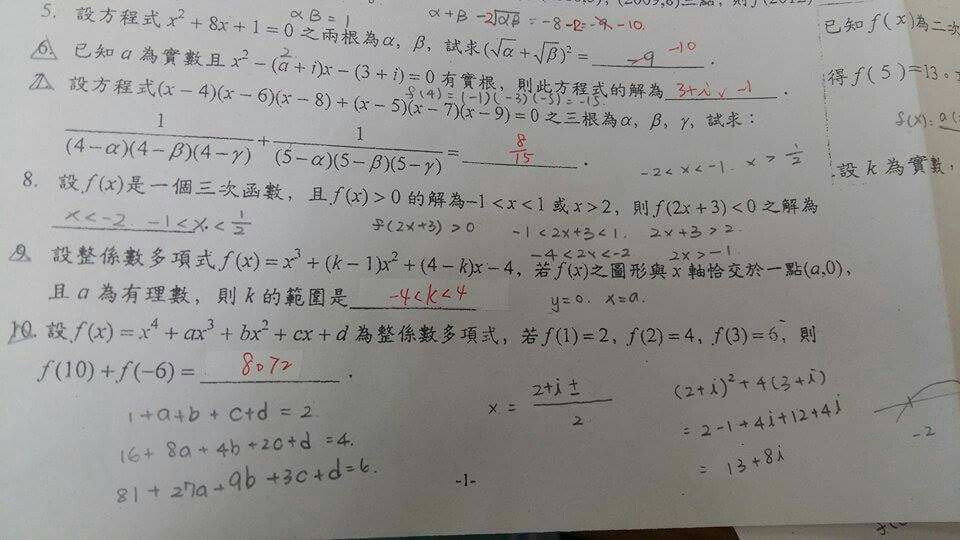 αβ = 1
α+β -2√αβ = -8-2 = -10.
5. 設方程式 x² + 8x + 1 = 0 之兩根為α, β, 試求(√α + √β)² = -9 -10 .
6. 已知 a 為實數且 x² − (a + i)x − (3 + i) = 0 有實根, 則此方程式的解為 3+i, -1 .
2
f(4) = (-1)(-3)(-5) = -15.
7. 設方程式(x − 4)(x − 6)(x − 8) + (x − 5)(x − 7)(x − 9) = 0 之三根為α, β, γ, 試求:
1/((4−α)(4−β)(4−γ)) + 1/((5−α)(5−β)(5−γ)) = 8/15 .
-2<x<-1. x > 1/2
8. 設 f(x)是一個三次函數, 且 f(x) > 0 的解為 −1 < x < 1 或 x > 2, 則 f(2x + 3) < 0 之解為
x<-2 -1<x<1/2 .
f(2x+3) > 0 -1<2x+3<1. 2x+3>2.
-4<2x<-2 2x>-1.
9. 設整係數多項式 f(x) = x³ + (k − 1)x² + (4 − k)x − 4, 若 f(x)之圖形與 x 軸恰交於一點(a,0),
且 a 為有理數, 則 k 的範圍是 -4<k<4 .
y=0. x=a.
10. 設 f(x) = x⁴ + ax³ + bx² + cx + d 為整係數多項式, 若 f(1) = 2, f(2) = 4, f(3) = 6, 則
f(10) + f(−6) = 8072 .
1+a+b+c+d = 2.
16+8a+4b+2c+d = 4.
81+27a+9b+3c+d = 6.
x = (2+i ±)/2
(2+i)²+4(3+i)
= 2-1+4i+12+4i
= 13+8i
-2
-1-
已知 f(x)為二次
得 f(5)=13。
f(x)= a(
設 k 為實數,